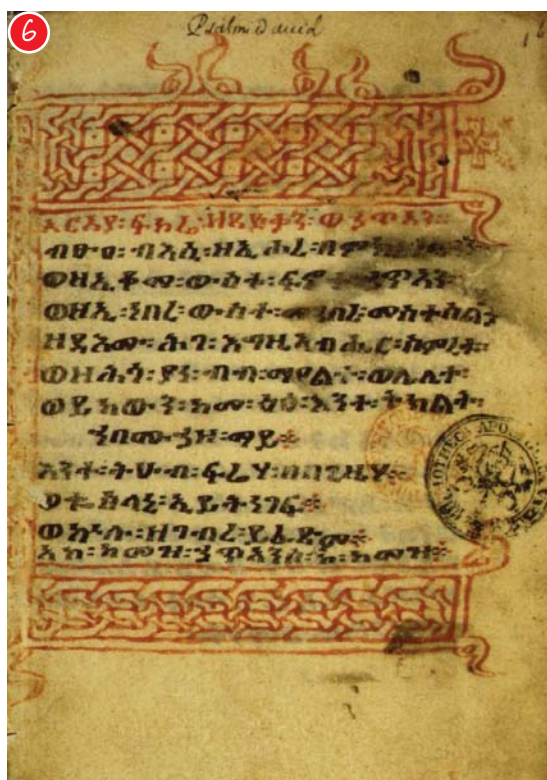 6
Psalmi David
1
ፍካሬ፡ ዘጻድቃን፡ ወኃጥአን።
ብፁዕ፡ ብእሲ፡ ዘኢሖረ፡
ወዘኢቆመ፡ ውስተ፡ ፍኖተ፡ ኃጥአን
ወዘኢነበረ፡ ውስተ፡ መንበረ፡
ዘዳእሙ፡ ሕገ፡ እግዚአብሔር፡ ስምረቱ።
ወዘሕጎ፡ ያነብብ፡ ማዐልተ፡ ወሌሊተ፡
ወይከውን፡ ከመ፡ ዕፅ፡ እንተ፡ ትክልት፡
ኀበ፡ ሙኃዘ፡ ማይ።
እንተ፡ ትሁብ፡ ፍሬሃ፡ በበጊዜሃ።
ወቈጽላኒ፡ ኢይትነገፍ።
ወኵሎ፡ ዘገብረ፡ ይፌጽም።
አኮ፡ ከመዝ፡ ኃጥአንሰ፡ አኮ፡ ከመዝ።